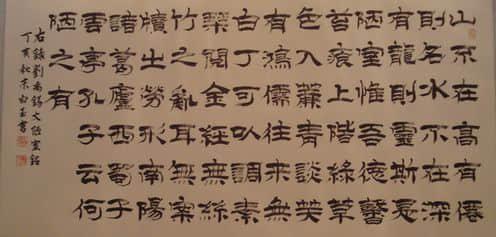 山不在高有僊
則名水不在深
有龍則靈斯是
陋室惟吾德馨
苔痕上階綠草
色入簾青談笑
有鴻儒往來無
白丁可以調素
琴閱金經無絲
竹之亂耳無案
牘之勞形南陽
諸葛廬西蜀子
雲亭孔子云何
陋之有
右錄劉禹錫文陋室銘
丁亥秋